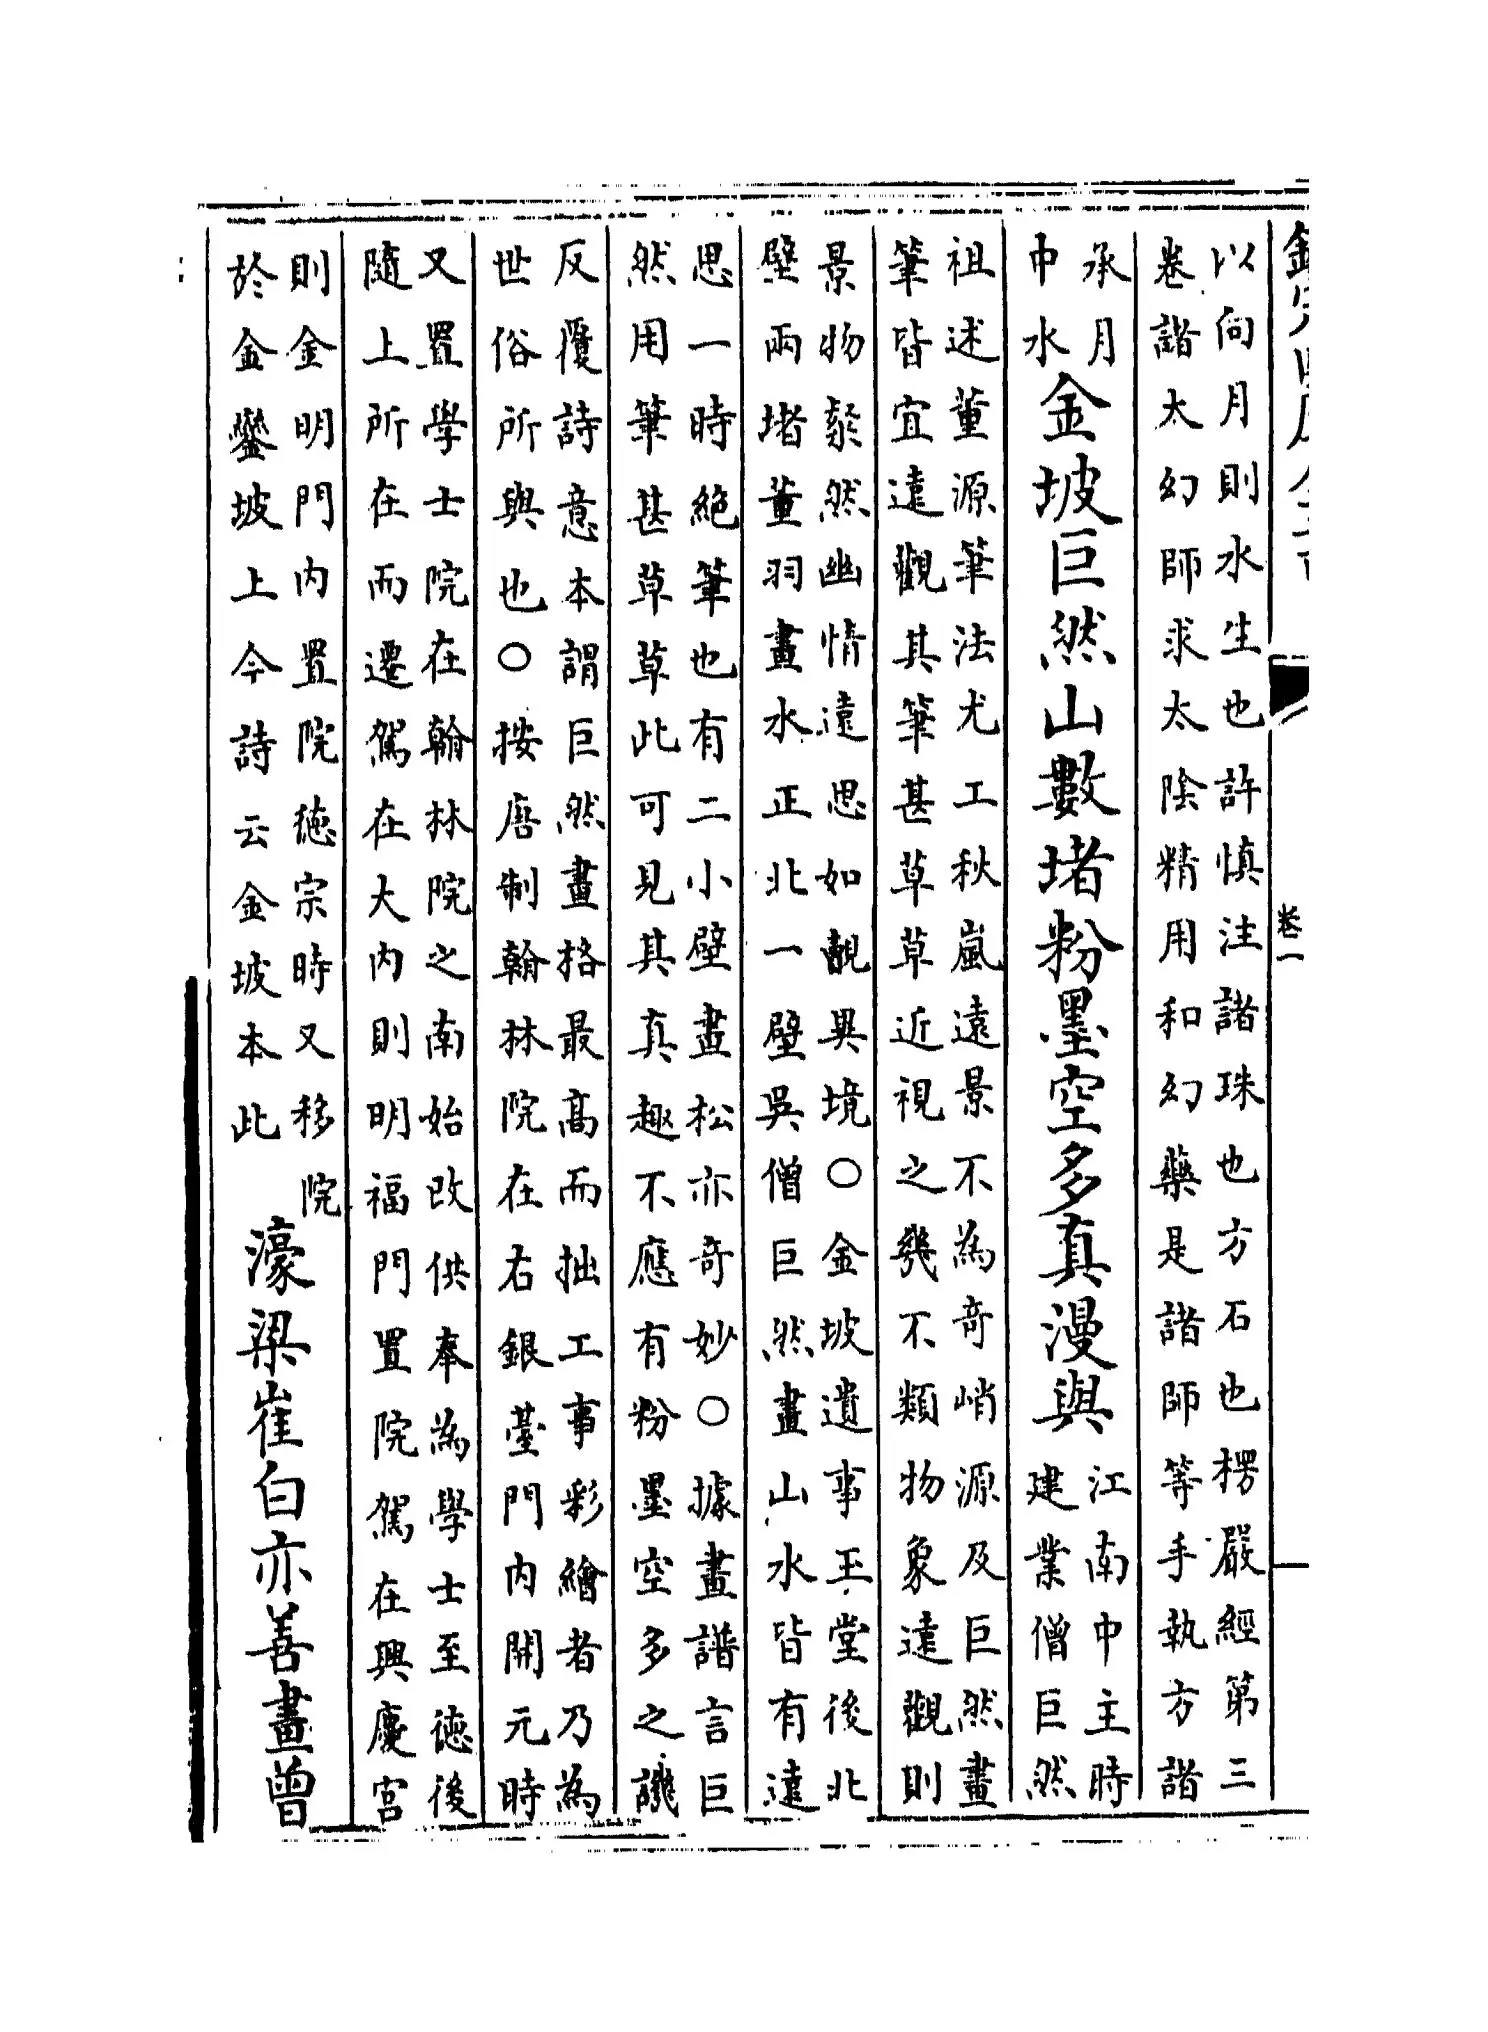 卷一
以向月則水生也許慎注諸珠也方石也楞嚴經第三
卷諸太幻師求太陰精用和幻藥是諸師等手執方諸
承月
中水
金坡巨然山數堵粉墨空多真漫與
江南中主時
建業僧巨然
祖述董源筆法尤工秋嵐遠景不為奇峭源及巨然畫
筆皆宜遠觀其筆甚草草近視之幾不類物象遠觀則
景物粲然幽情遠思如覩異境〇金坡遺事玉堂後北
壁兩堵董羽畫水正北一壁吳僧巨然畫山水皆有遠
思一時絶筆也有二小壁畫松亦奇妙〇據畫譜言巨
然用筆甚草草此可見其真趣不應有粉墨空多之譏
反覆詩意本謂巨然畫格最高而拙工事彩繪者乃為
世俗所與也〇按唐制翰林院在右銀臺門内開元時
又置學士院在翰林院之南始改供奉為學士至德後
隨上所在而遷駕在大内則明福門置院駕在興慶宫
則金明門内置院德宗時又移院
於金鑾坡上今詩云金坡本此
濠梁崔白亦善畫曾